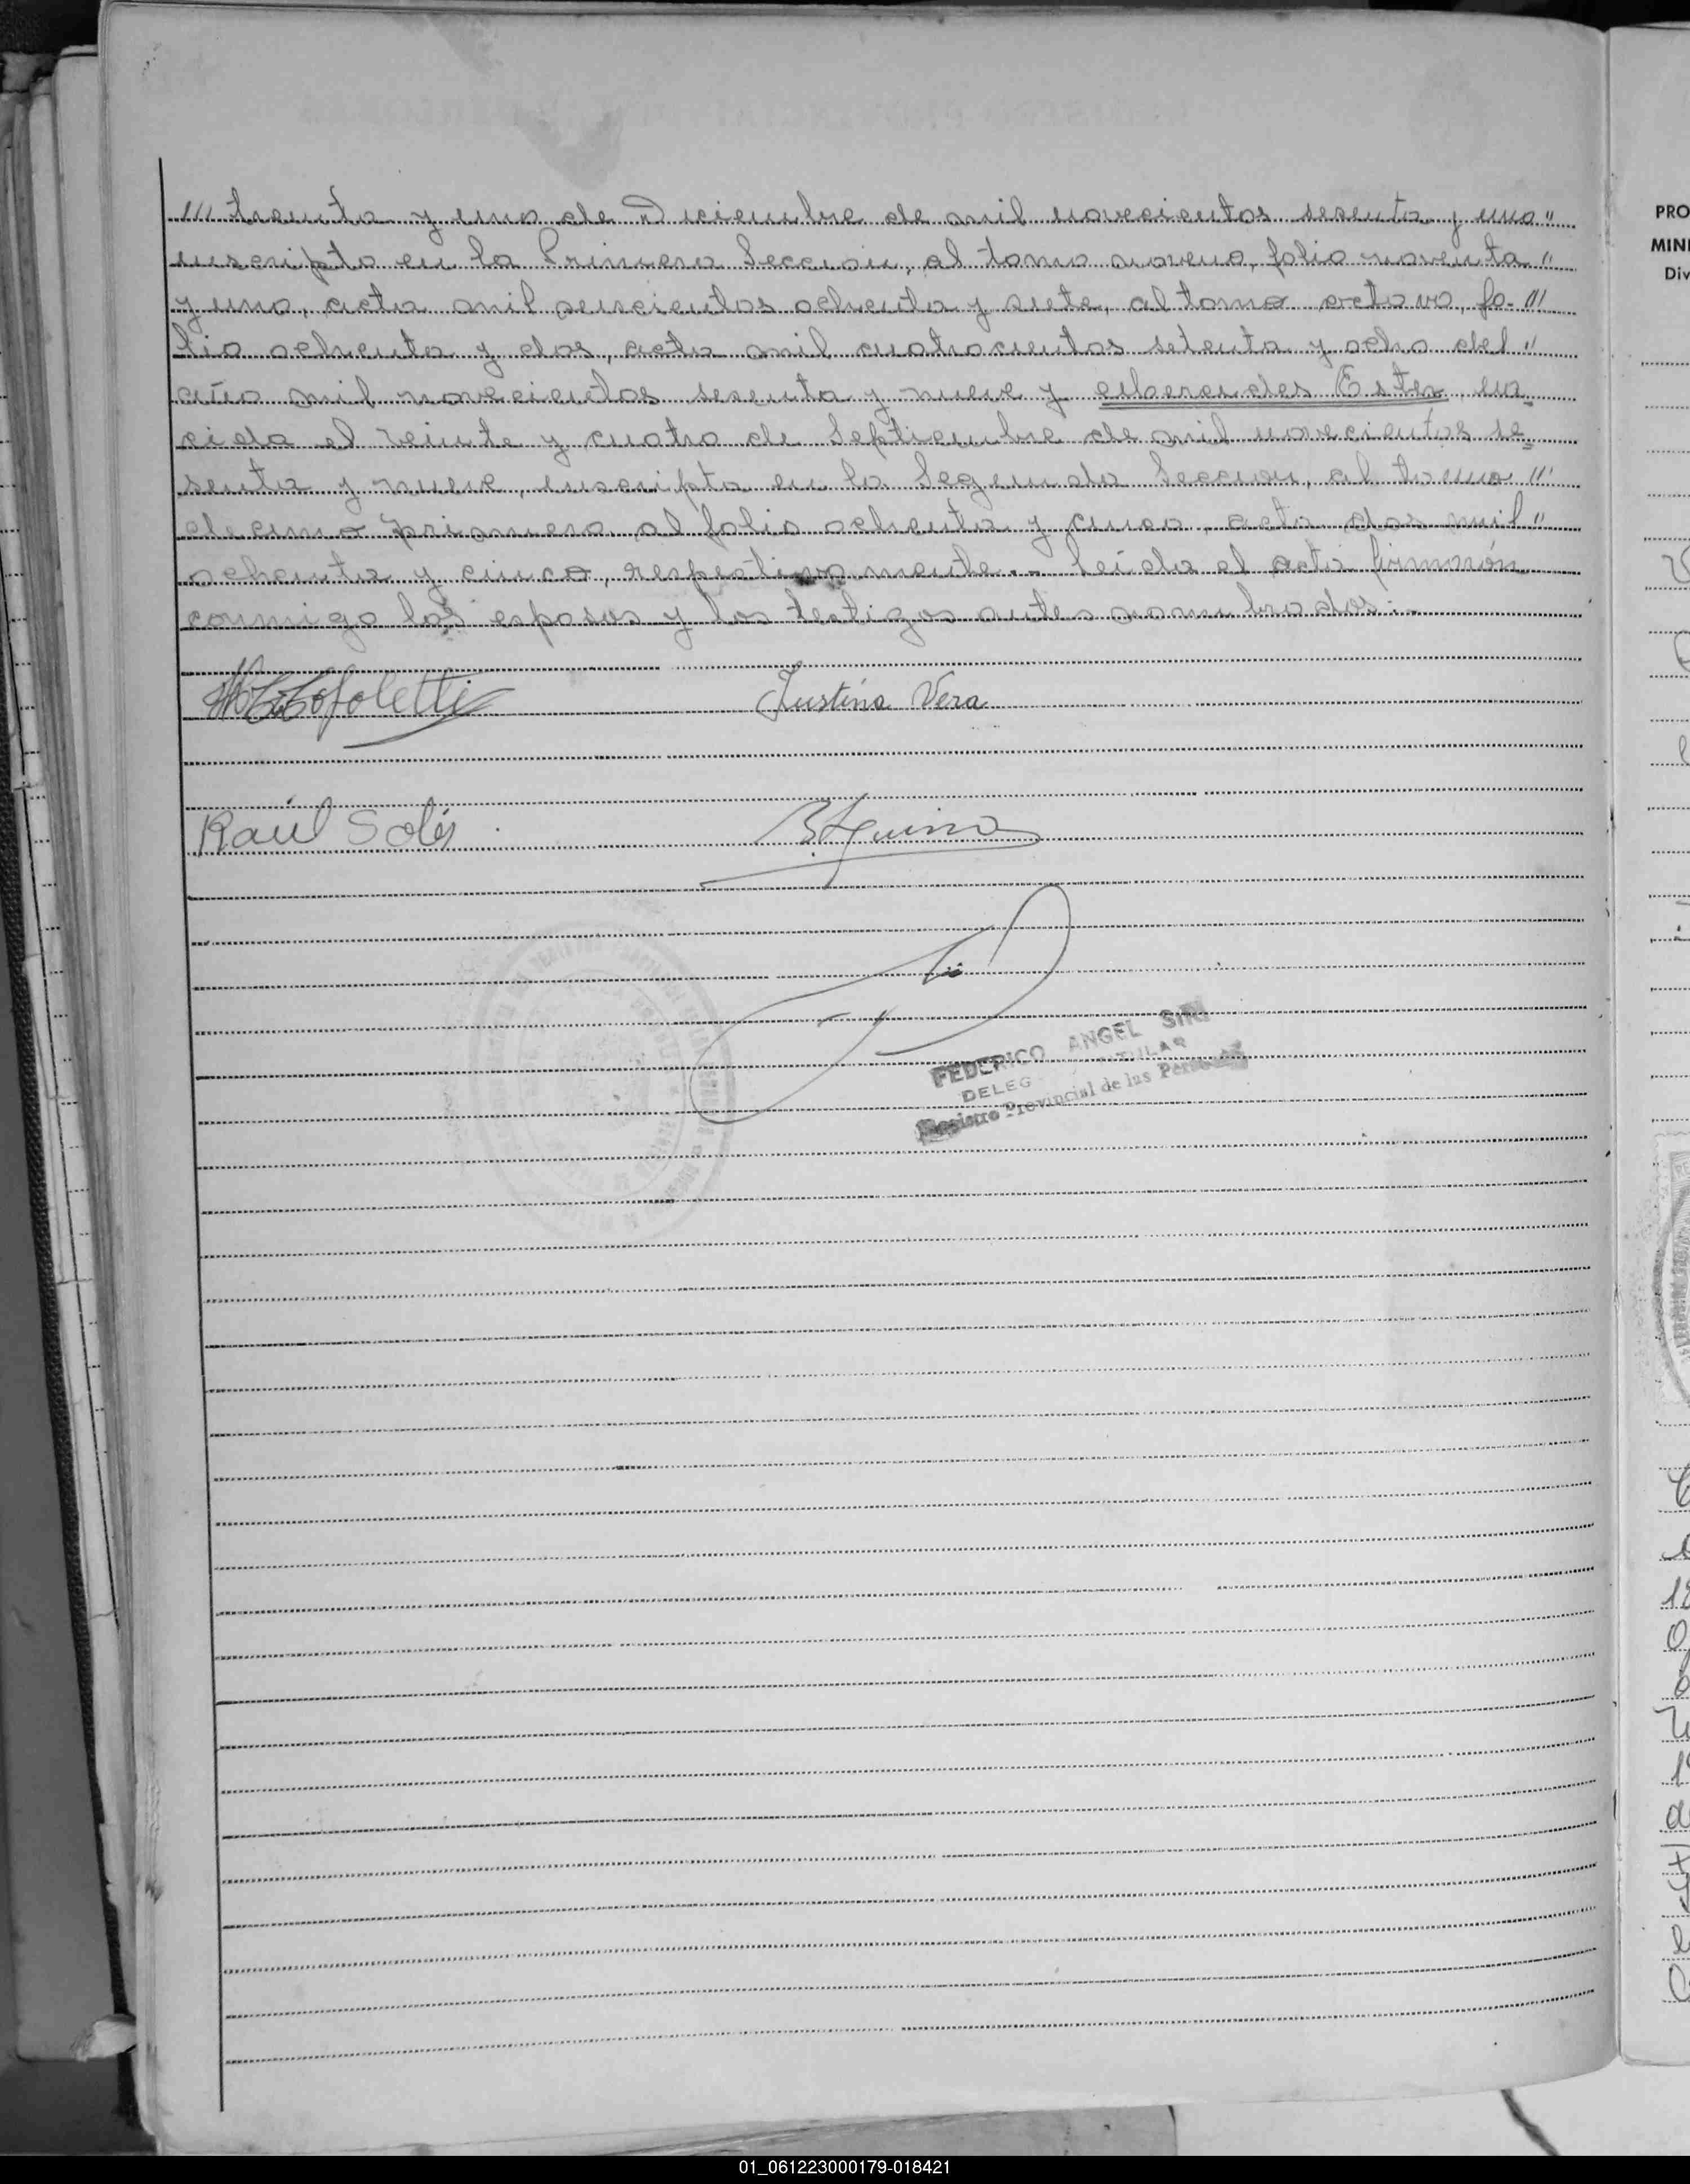 /// treinta y uno de Diciembre de mil novecientos sesenta y uno "
inscripto en la Primera Seccion, al tomo noveno, folio noventa "
y uno, acta mil seiscientos ochenta y siete, al tomo octavo, fo- ///
lio ochenta y dos, acta mil cuatrocientos setenta y ocho del "
año mil novecientos sesenta y nueve y Mercedes Ester, na=
cida el veinte y cuatro de Septiembre de mil novecientos se=
senta y nueve, inscripta en la Segunda Seccion, al tomo ///
decimo primero al folio ochenta y cinco, acta dos mil "
ochenta y cinco, respectivamente.- Leída el acta firmarón
conmigo los esposos y los testigos antes nombrados:-
Justina Vera
Raúl Solís
FEDERICO ANGEL
DELEG TITULAR
Registro Provincial de las Personas
PRO
MINI
Div
01_061223000179-018421